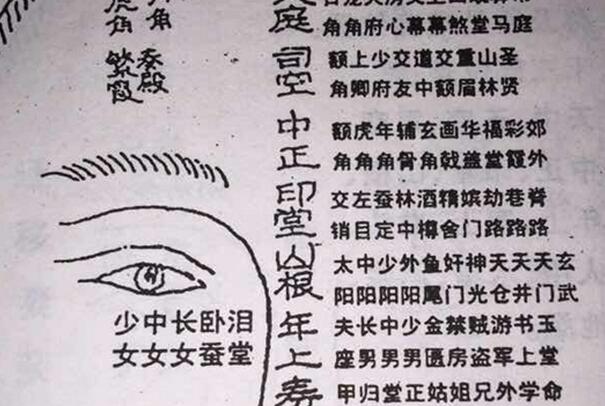 虎角
角
繁霞
奏殿
庭
角角府心幕幕煞堂马庭
司空
额上少交道交重山圣
角卿府友中额眉林贤
中正
额虎年辅玄画华福彩郊
角角角骨角戟盖堂霞外
印堂
交左蚕林酒精嫔劫巷脊
销目定中樽舍门路路路
山根
太中少外鱼奸神天天天玄
阳阳阳阳尾门光仓井门武
年上
夫长中少金禁贼游书玉
座男男男匮房盗军上堂
寿
甲归堂正姑姐兄外学命
少中长卧泪
女女女蚕堂